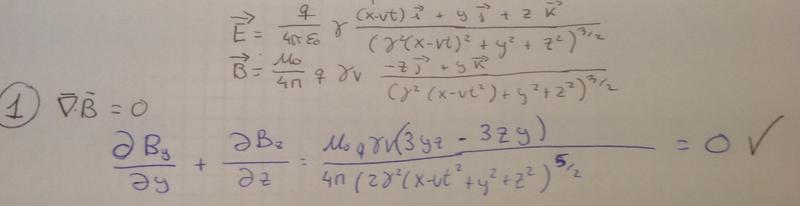 E⃗ = q/4πε₀ γ ((x-vt) i⃗ + y j⃗ + z k⃗)/(γ²(x-vt)² + y² + z²)^3/2
B⃗ = μ₀/4π q γv (-z j⃗ + y k⃗)/(γ²(x-vt²) + y² + z²)^3/2
① ∇⃗B⃗ = 0
∂By/∂y + ∂Bz/∂z = μ₀qγv(3yz - 3zy)/4π(2γ²(x-vt²+y²+z²)^5/2 = 0 ✓